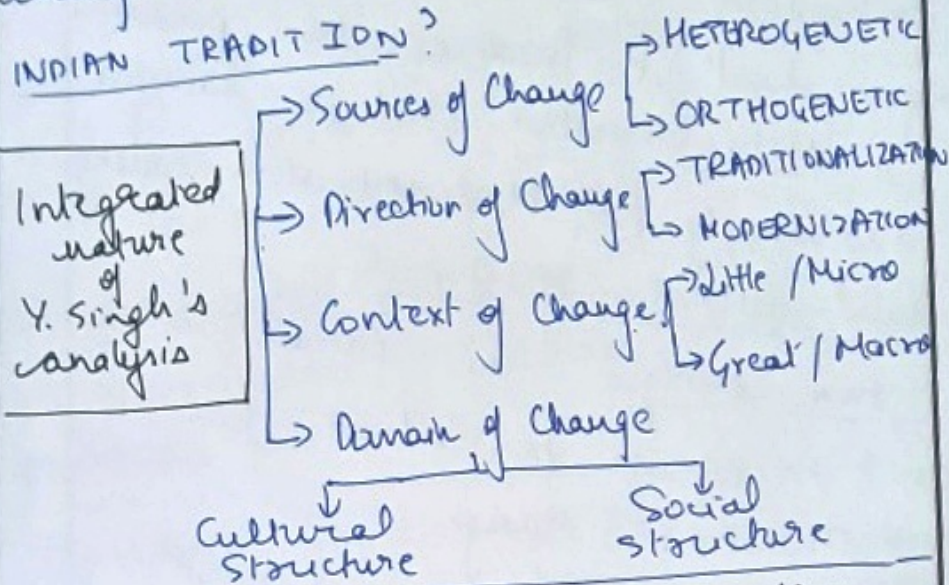 INDIAN TRADITION?
Integrated
nature
of
Y. Singh's
analysis
Sources of Change
HETEROGENETIC
ORTHOGENETIC
Direction of Change
TRADITIONALIZATION
MODERNIZATION
Context of Change
Little / Micro
Great / Macro
Domain of Change
Cultural
Structure
Social
structure